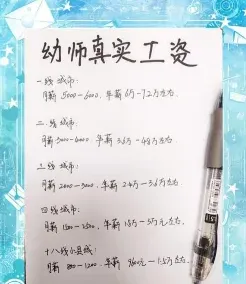 幼师真实工资
一线城市:
月薪 5000-6000, 年薪 6万-7.2万左右.
二线城市:
月薪 3000-4000, 年薪 3.6万-4.8万左右.
三线城市:
月薪 2000-3000, 年薪 2.4万-3.6万左右.
四线城市:
月薪 1500-2500, 年薪
十八线小县城:
月薪 800-1200, 年薪 9600元-1.5万左右.